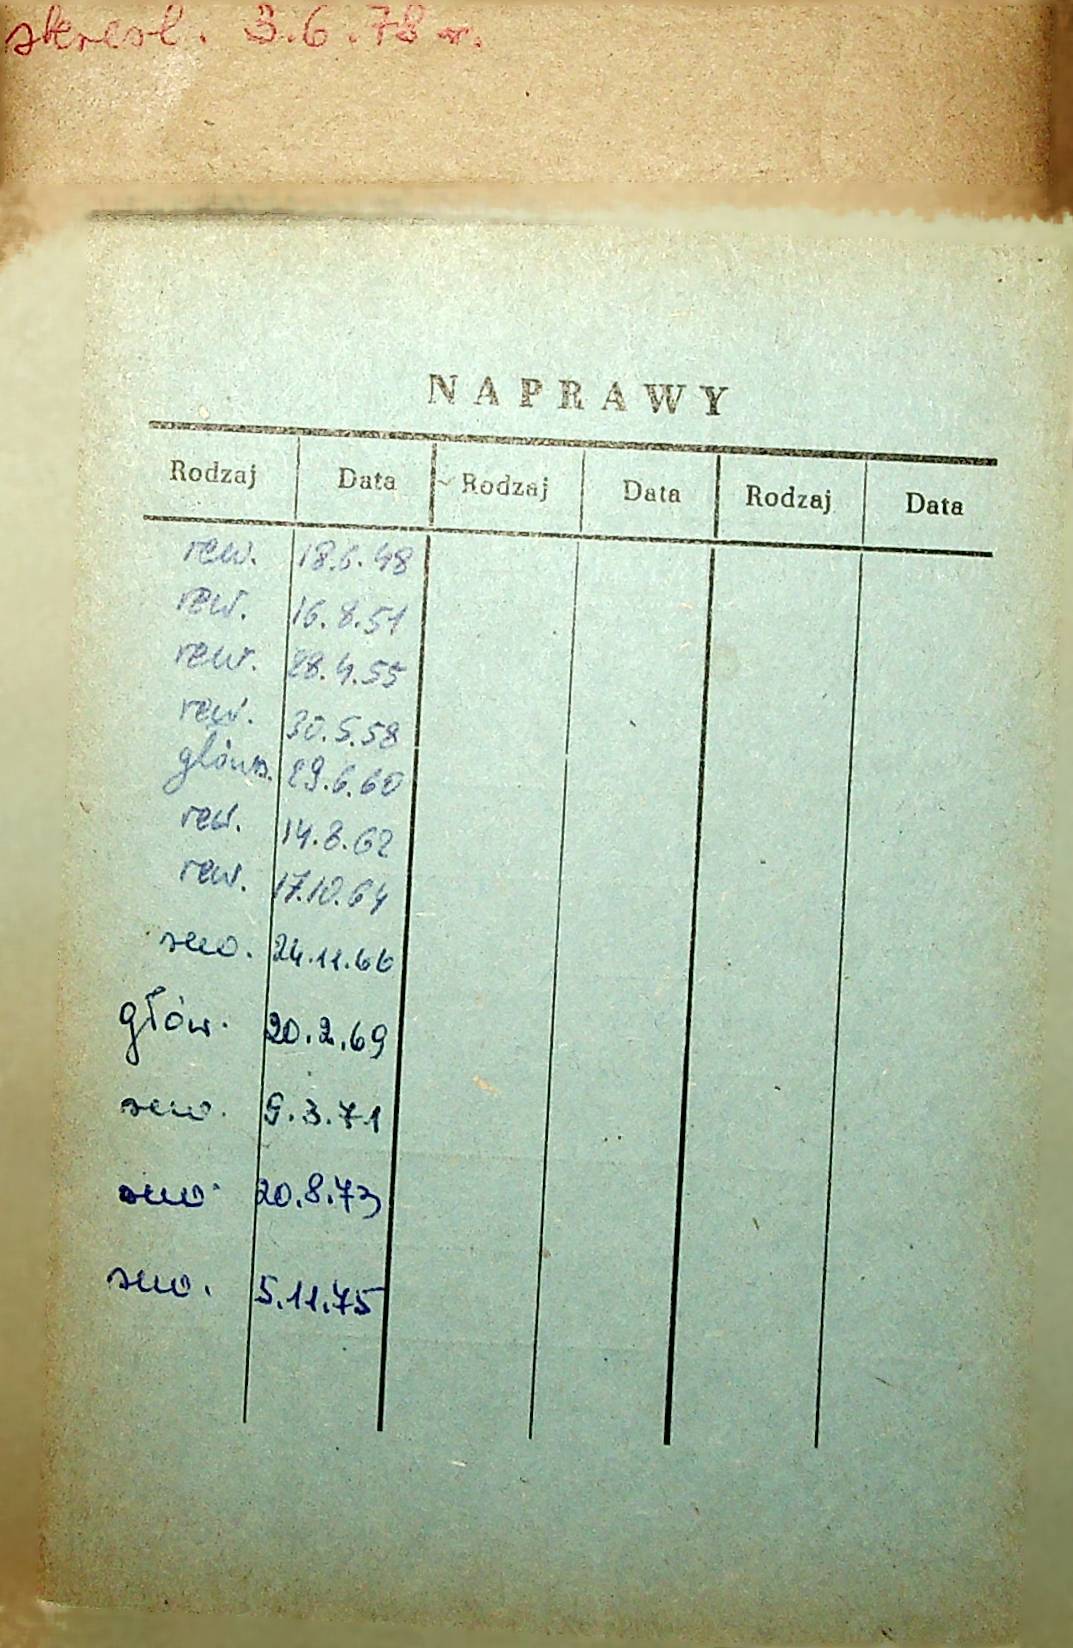 skreśl. 3.6.78 r.
NAPRAWY
Rodzaj Data Rodzaj Data Rodzaj Data
rew. 18.6.48
rew. 16.8.51
rew. 28.4.55
rew. 30.5.58
główn. 29.6.60
rew. 14.8.62
rew. 17.10.64
rew. 24.11.66
głów. 20.2.69
rew. 9.3.71
rew. 20.8.73
rew. 5.11.75